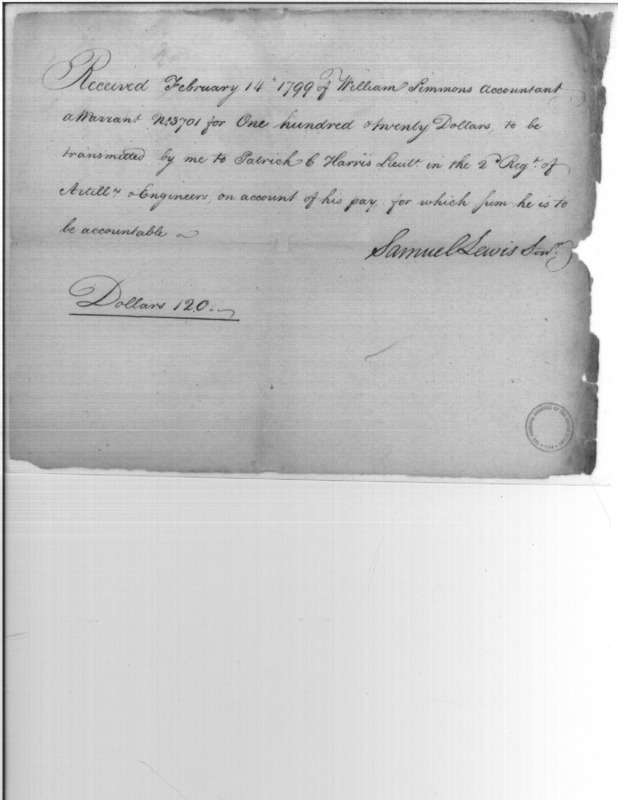 Received February 14th 1799 of William Simmons Accountant
a Warrant No 3701 for One hundred & twenty Dollars, to be
transmitted by me to Patrick C Harris Lieutt in the 2d Regt of
Artilly & Engineers, on account of his pay, for which sum he is to
be accountable
Samuel Lewis Senr
Dollars 120.